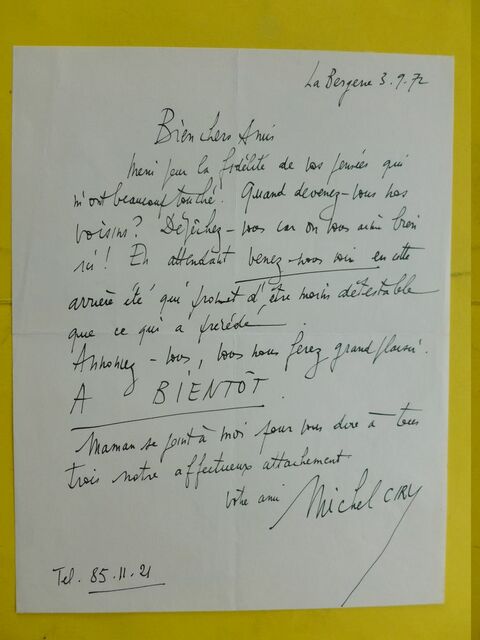 La Bergerie 3.9.72
Bien chers Amis
Merci pour la fidélité de vos pensées qui
m'ont beaucoup touché. Quand devenez-vous nos
voisins? Dépêchez-vous car on vous aime bien
ici! En attendant venez-nous voir en cette
arrière été qui promet d'être moins détestable
que ce qui a précédé.
Annoncez-vous, vous nous ferez grand plaisir.
A BIENTÔT.
Maman se joint à moi pour vous dire à tous
trois notre affectueux attachement.
Votre ami Michel CIRY
Tel. 85.11.21